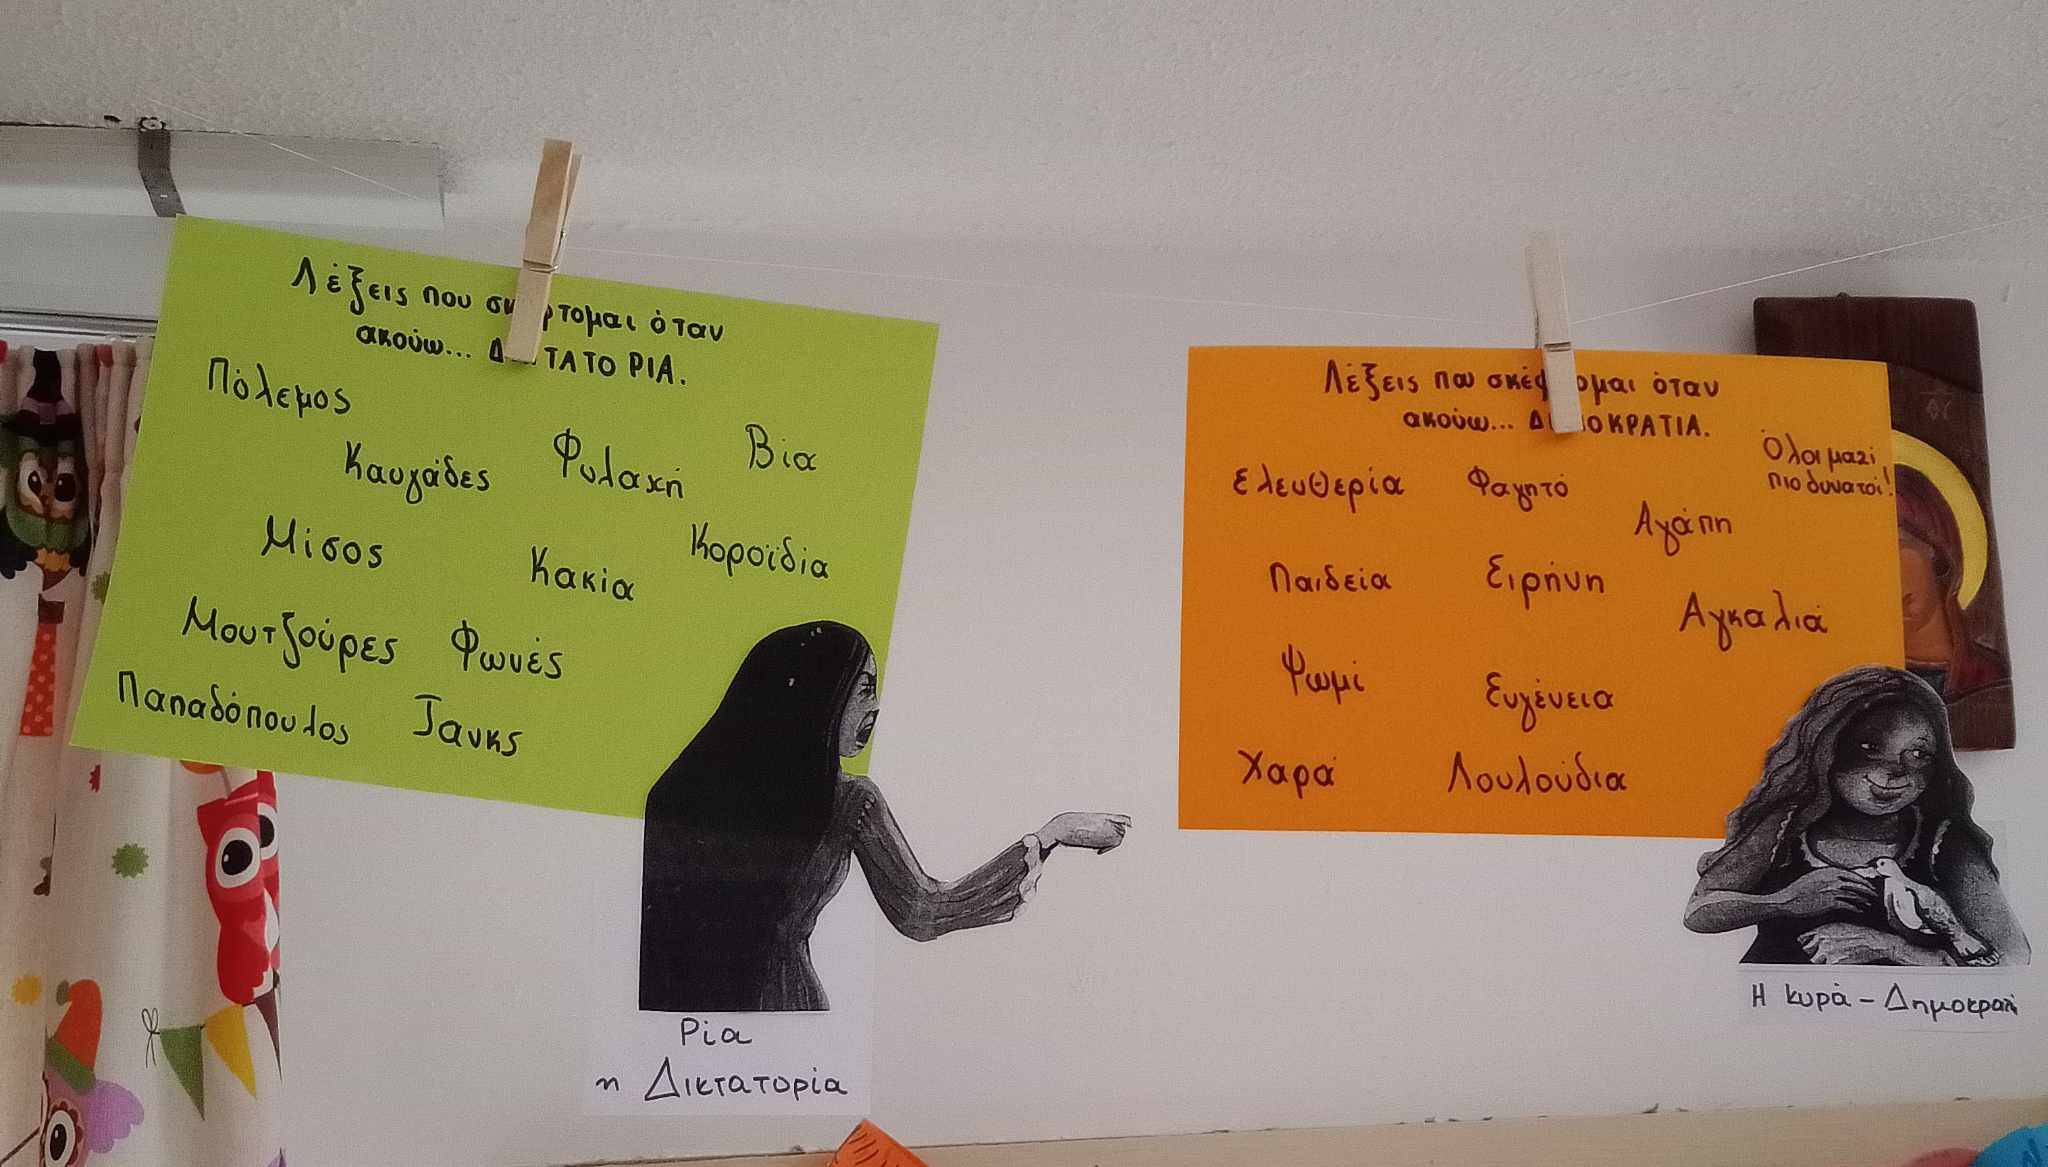 Λέξεις που σκέφτομαι όταν
ακούω... ΔΙΚΤΑΤΟΡΙΑ.
Πόλεμος
Καυγάδες Φυλακή Βία
Μίσος Κακία Κοροϊδία
Μουτζούρες Φωνές
Παπαδόπουλος Τανκς
Ρία
η Δικτατορία
Λέξεις που σκέφτομαι όταν
ακούω... ΔΗΜΟΚΡΑΤΙΑ.
Όλοι μαζί
πιο δυνατοί!
Ελευθερία Φαγητό
Αγάπη
Παιδεία Ειρήνη
Αγκαλιά
Ψωμί Ευγένεια
Χαρά Λουλούδια
Η κυρά - Δημοκρατί